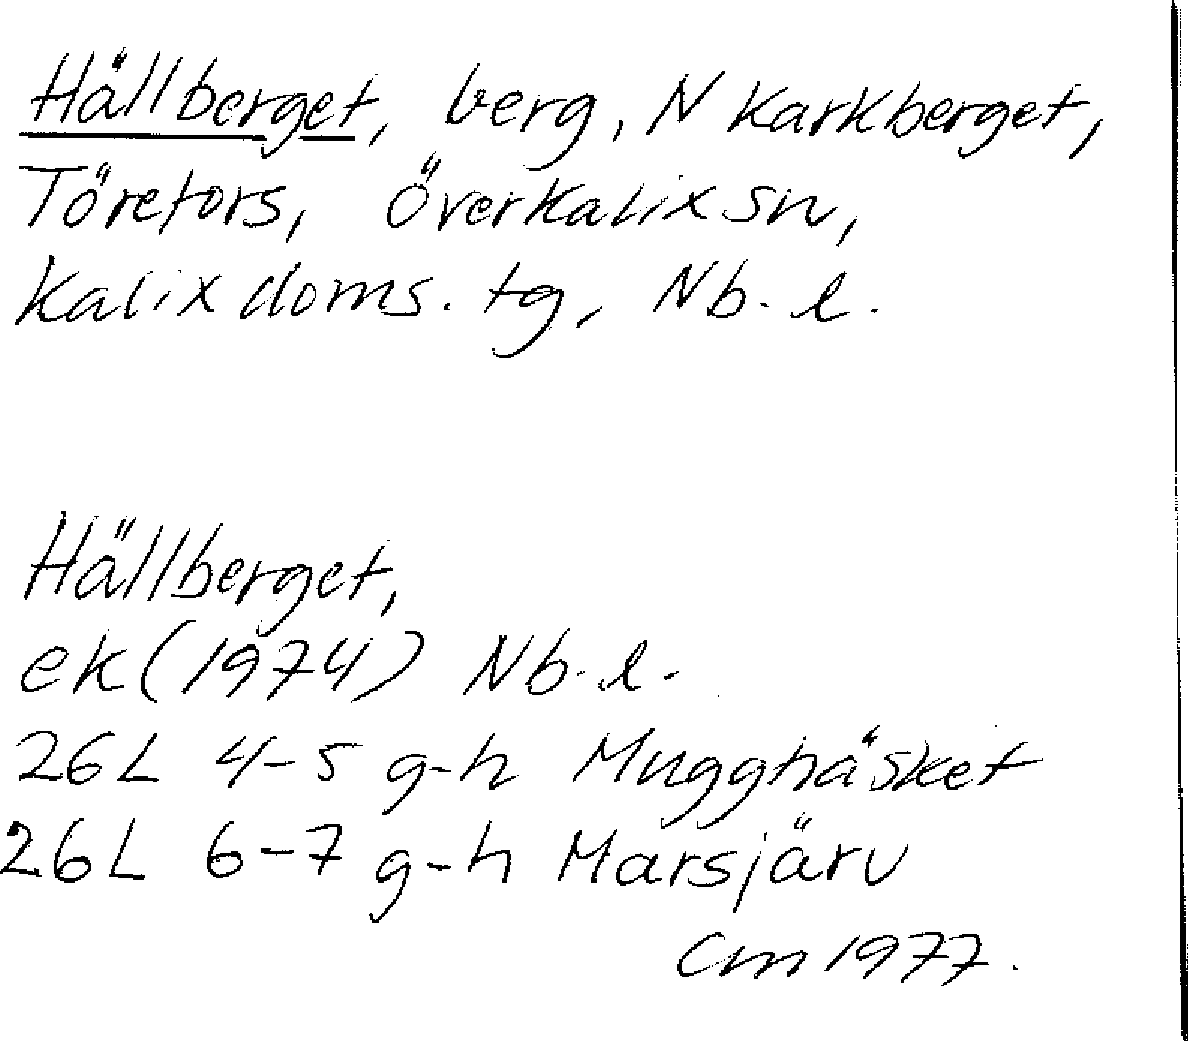 Hällberget, berg, N Karkberget,
Törefors, Överkalix sn,
Kalix doms. tg, Nb. l.
Hällberget,
ek (1974) Nb. l.
26L 4-5 g-h Mugghäsket
26L 6-7 g-h Marsjärv
Cm 1977.